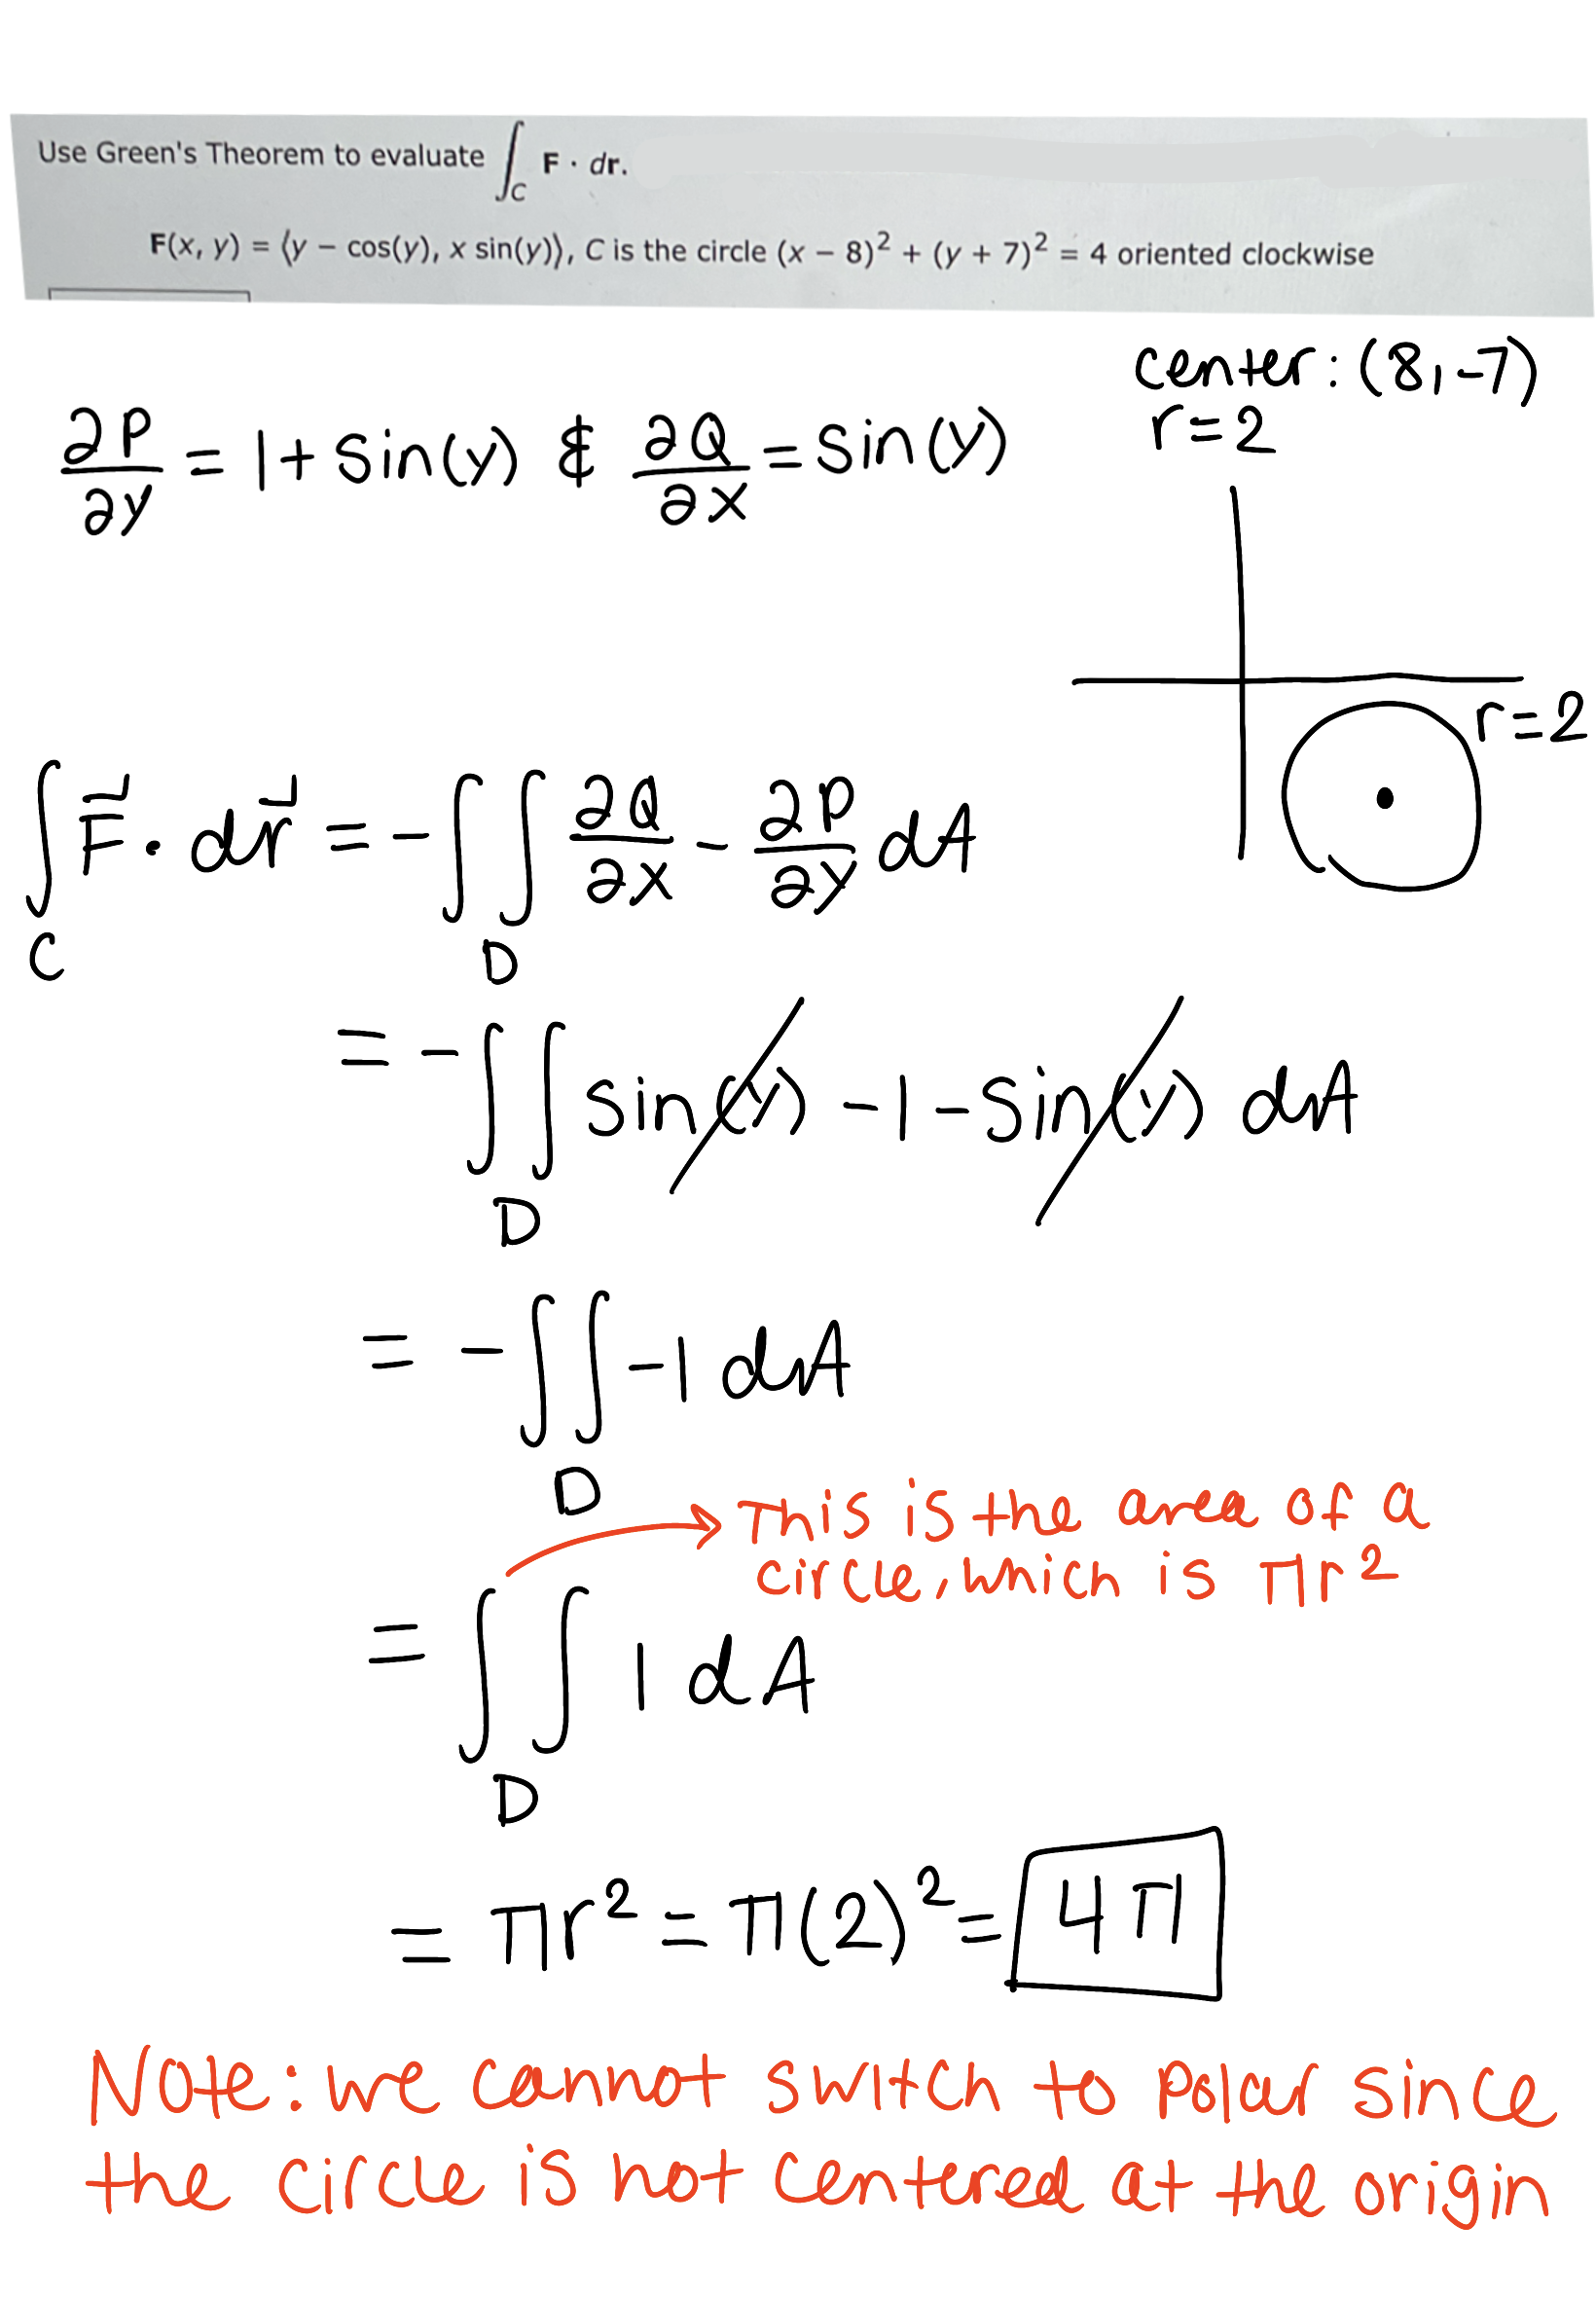 Use Green's Theorem to evaluate ∫_C F · dr.
F(x, y) = ⟨y − cos(y), x sin(y)⟩, C is the circle (x − 8)² + (y + 7)² = 4 oriented clockwise
center: (8,-7)
r=2
∂P/∂y = 1+ Sin(y) & ∂Q/∂x = Sin(y)
r=2
∫_C F⃗ · dr⃗ = -∬_D ∂Q/∂x - ∂P/∂y dA
= -∬_D sin(y) -1 - Sin(y) dA
= -∬_D -1 dA
This is the area of a
circle, which is πr²
= ∬_D 1 dA
= πr² = π(2)² = 4π
Note: we cannot switch to polar since
the circle is not centered at the origin